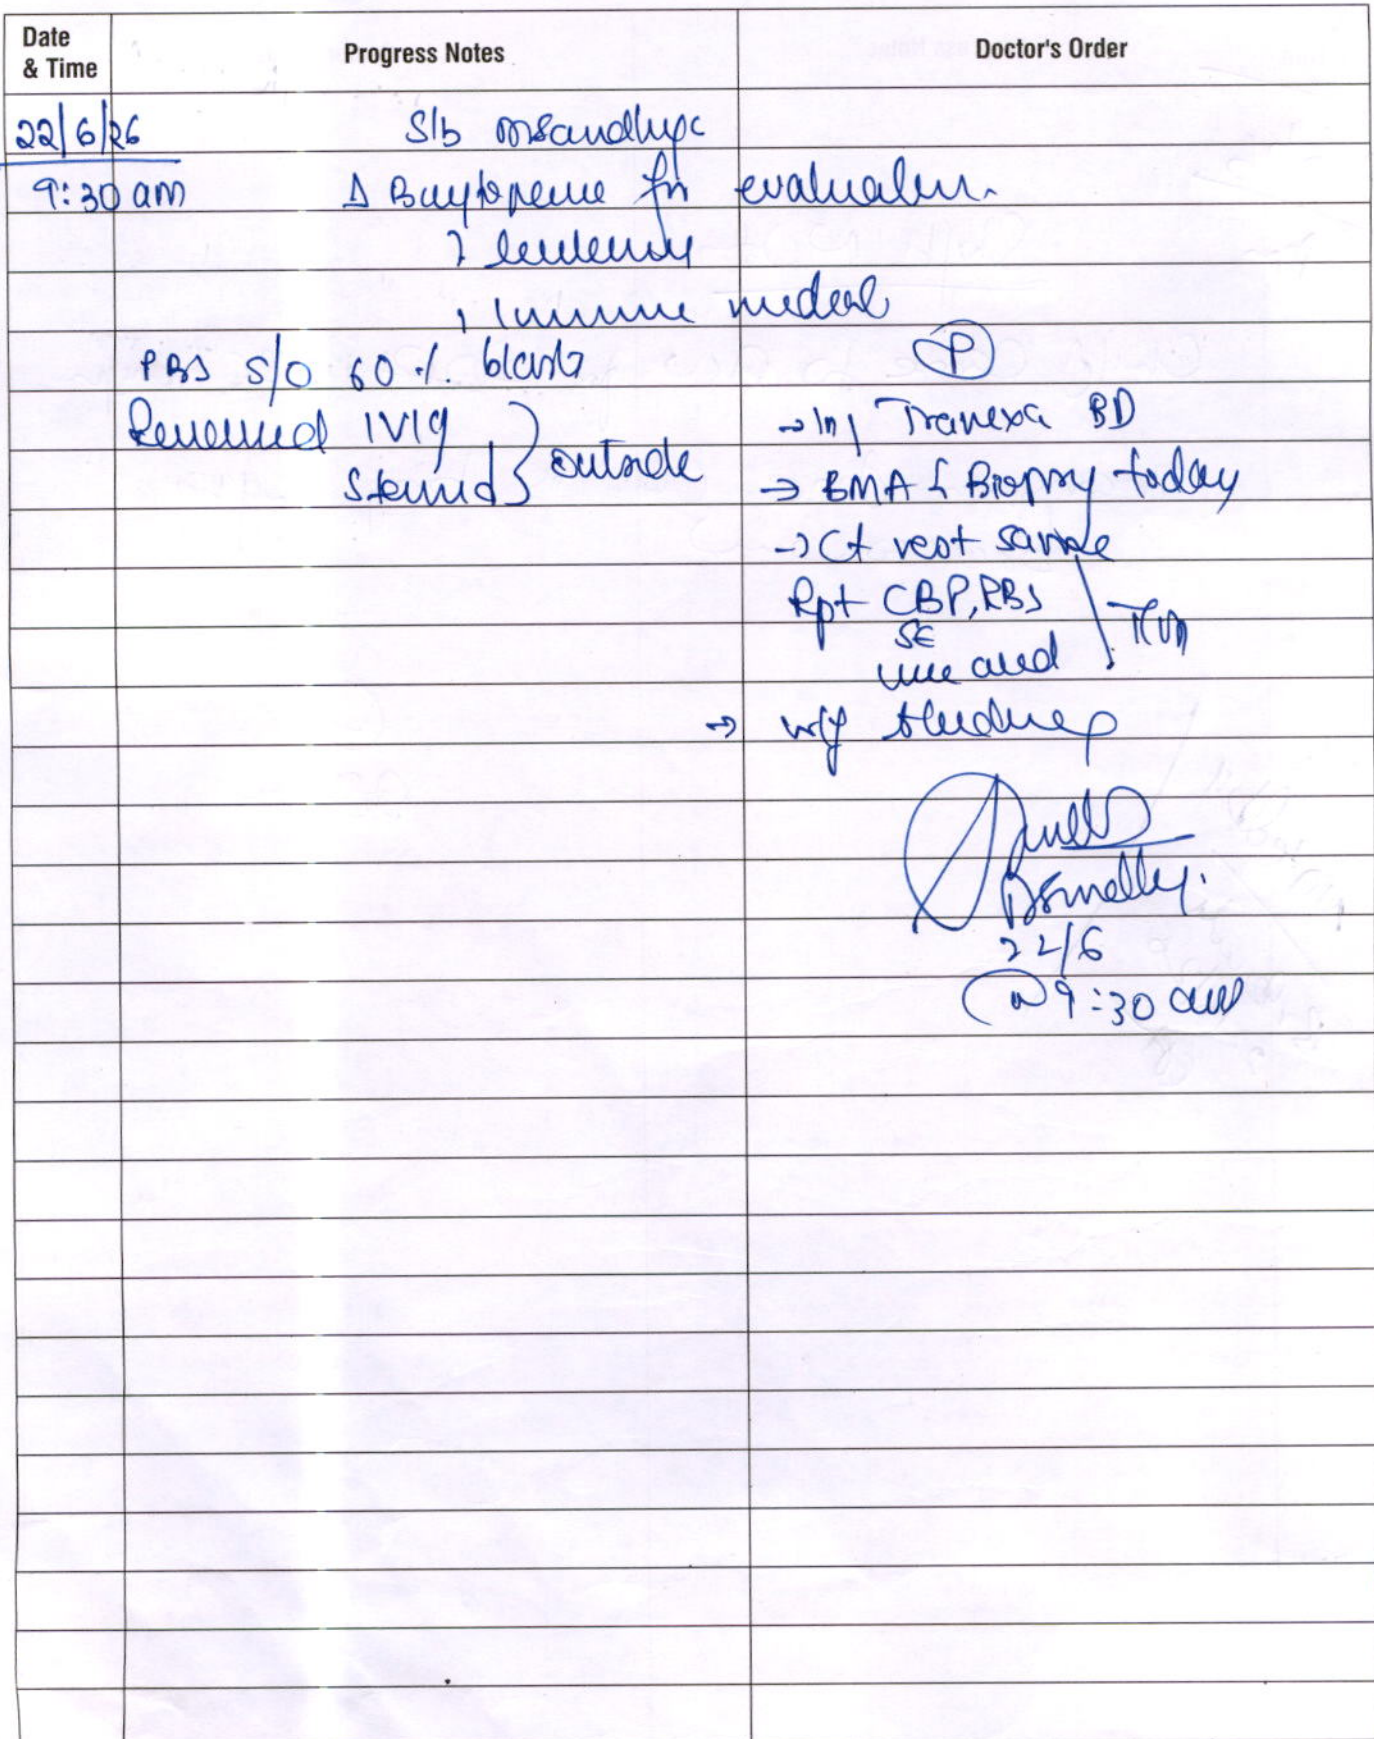 Date & Time Progress Notes Doctor's Order
22/6/26 S/b
9:30 am Δ for evaluation.
? leukemia
, Immune
PBS S/O 60 % blasts
Received IVIg
Steroid } outside
(P)
→ Inj Tranexa BD
→ BMA & Biopsy today
→ Ct rest same
Rpt CBP, RBS
SE
uric acid
→ w/f bleeding
22/6
@ 9:30 am